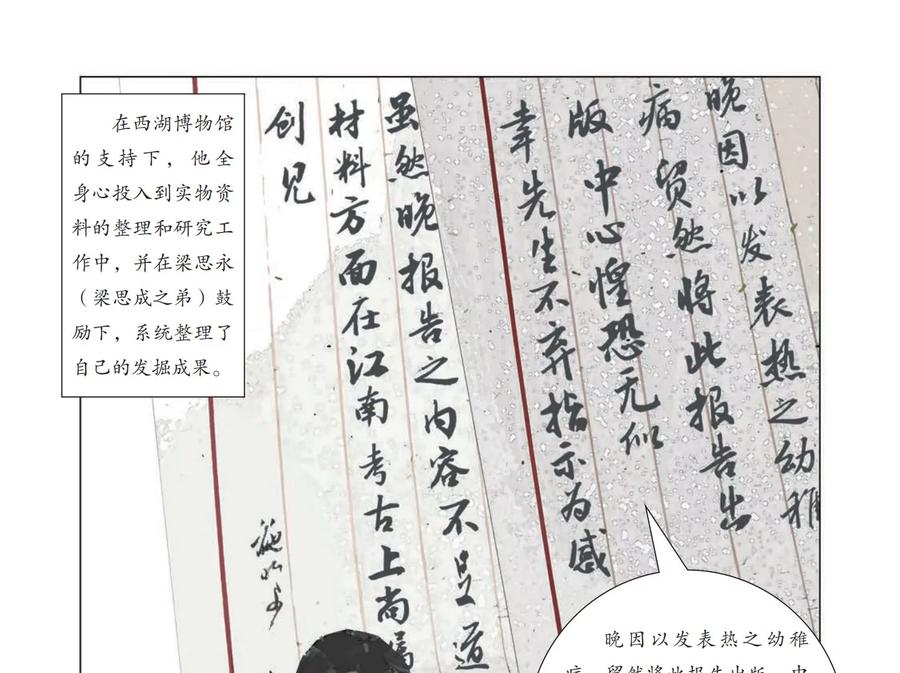 在西湖博物馆
的支持下，他全
身心投入到实物资
料的整理和研究工
作中，并在梁思永
（梁思成之弟）鼓
励下，系统整理了
自己的发掘成果。
晚因以发表热之幼稚
病贸然将此报告出
版中心惶恐无似
幸先生不弃指示为感
虽然晚报告之内容不足道
材料方面在江南考古上尚属
创见
施昕更
晚因以发表热之幼稚
病，贸然将此报告出版，中